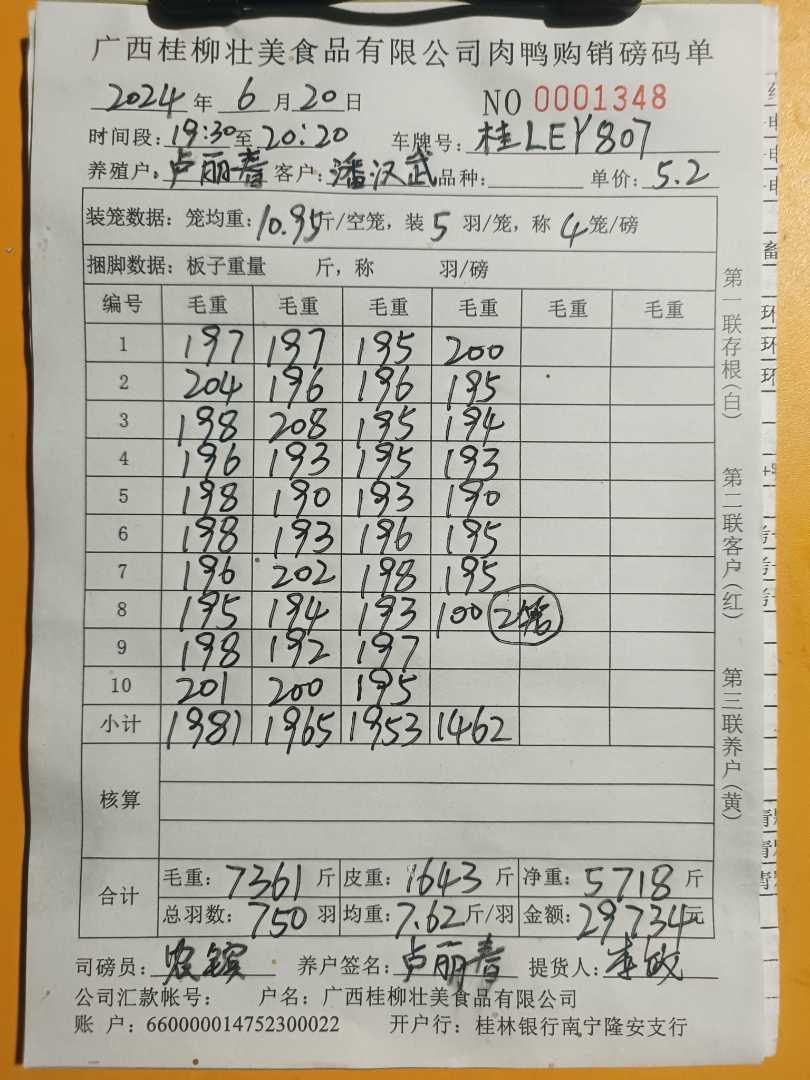 广西桂柳壮美食品有限公司肉鸭购销磅码单
2024年6月20日 NO 0001348
时间段:19:30至20:20 车牌号:桂LEY807
养殖户:卢丽春 客户:潘汉武 品种: 单价:5.2
装笼数据:笼均重:10.95斤/空笼,装5羽/笼,称4笼/磅
捆脚数据:板子重量 斤,称 羽/磅
编号 毛重 毛重 毛重 毛重 毛重 毛重
1 197 197 195 200
2 204 196 196 195
3 198 208 195 194
4 196 193 195 193
5 198 190 193 190
6 198 193 196 195
7 196 202 198 195
8 195 194 193 100 2笼
9 198 192 197
10 201 200 195
小计 1981 1965 1953 1462
核算
合计 毛重:7361斤 皮重:1643斤 净重:5718斤
总羽数:750羽 均重:7.62斤/羽 金额:29734元
司磅员: 养户签名:卢丽春 提货人:
公司汇款帐号: 户名:广西桂柳壮美食品有限公司
账 户:660000014752300022 开户行:桂林银行南宁隆安支行
第一联存根(白)
第二联客户(红)
第三联养户(黄)